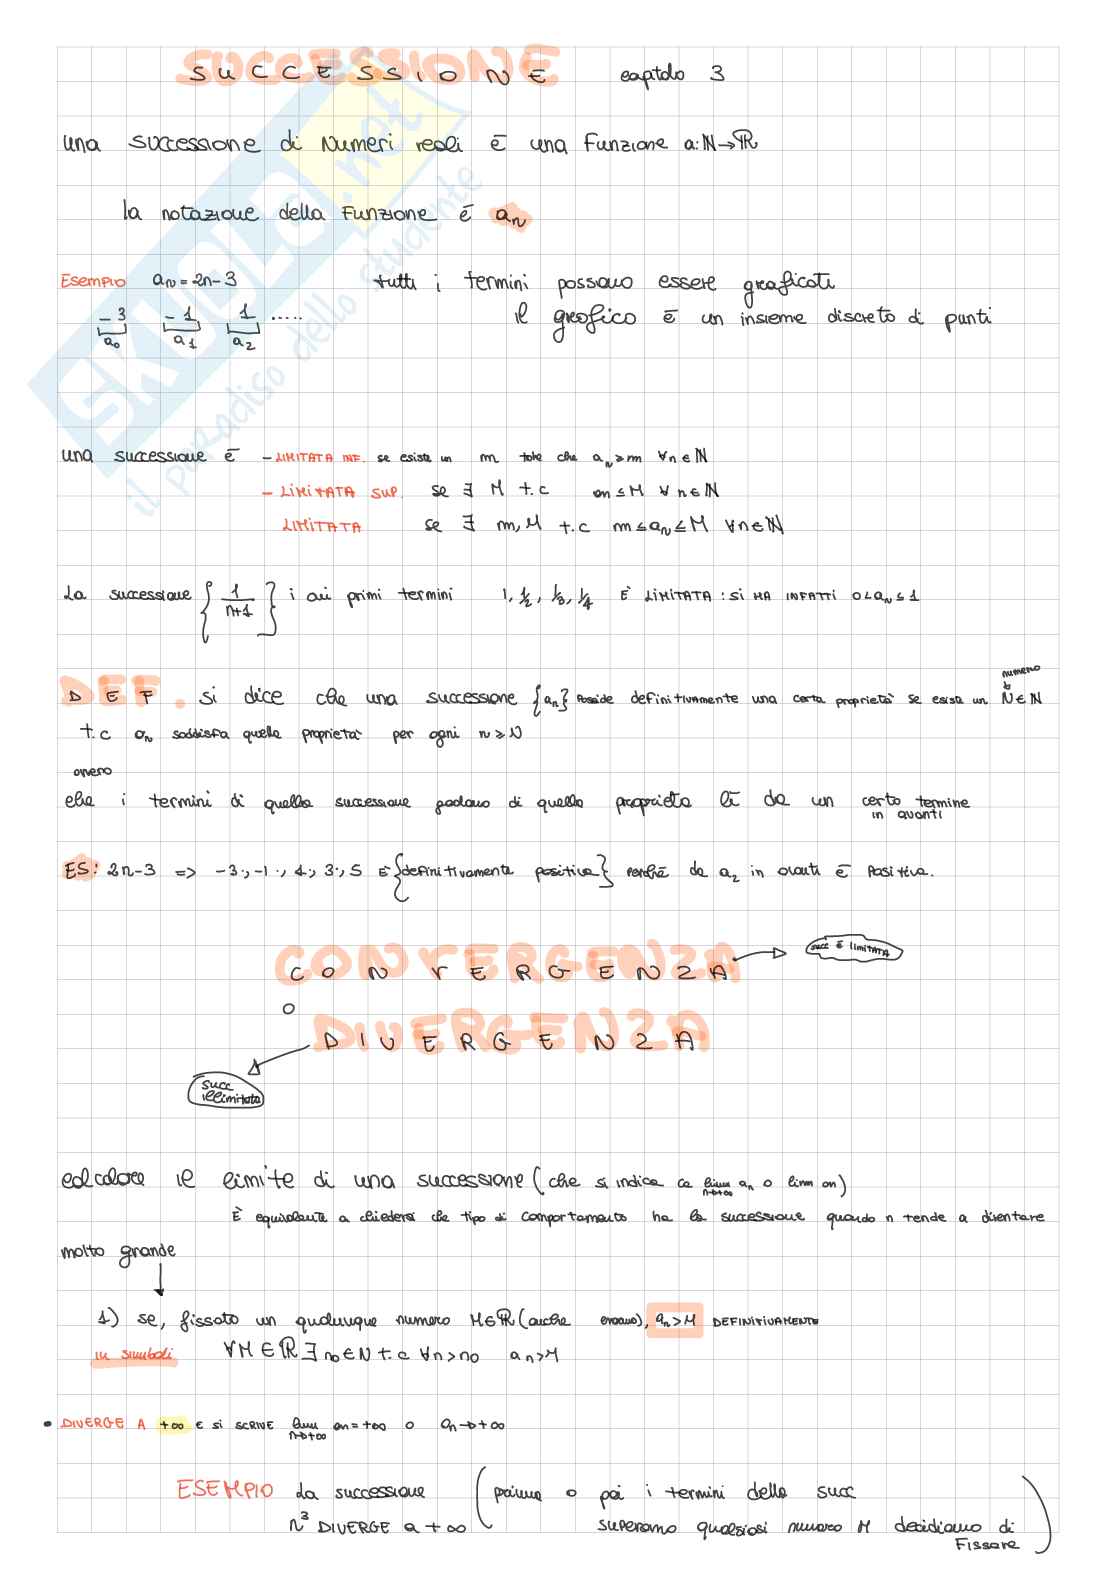 SUCCESSIONE capitolo 3
una successione di Numeri reali è una Funzione a: ℕ→ℝ
la notazione della Funzione è aₙ
Esempio aₙ = 2n-3 tutti i termini possono essere graficati
-3 -1 1 ..... il grafico è un insieme discreto di punti
a₀ a₁ a₂
una successione è - LIMITATA INF. se esiste un m tale che aₙ ≥ m ∀n ∈ ℕ
- LIMITATA SUP. se ∃ M t.c an ≤ M ∀ n ∈ ℕ
LIMITATA se ∃ m, M t.c m ≤ aₙ ≤ M ∀n ∈ ℕ
La successione { 1/(n+1) } i cui primi termini 1, 1/2, 1/3, 1/4 È LIMITATA : SI HA INFATTI 0 < aₙ ≤ 1
numero
DEF. si dice che una successione {aₙ} Possiede definitivamente una certa proprietà se esiste un N ∈ ℕ
t.c aₙ soddisfa quella proprietà per ogni n ≥ N
ovvero
che i termini di quella successione godano di quella proprietà lì da un certo termine
in avanti
ES: 2n-3 => -3; -1; 1; 3; 5 È {definitivamente positiva} Perché da a₂ in avanti è Positiva.
succ è LIMITATA
CONVERGENZA
O
DIVERGENZA
succ
illimitata
calcolare il limite di una successione (che si indica con lim n→+∞ aₙ o lim an)
È equivalente a chiedersi che tipo di comportamento ha la successione quando n tende a diventare
molto grande
1) se, fissato un qualunque numero M∈ℝ (anche enorme), aₙ > M DEFINITIVAMENTE
in simboli ∀M ∈ ℝ ∃ n₀ ∈ N t.c ∀n > n₀ aₙ > M
• DIVERGE A +∞ E SI SCRIVE lim n→+∞ an = +∞ o aₙ → +∞
ESEMPIO La successione (prima o poi i termini della succ
n³ DIVERGE a +∞ superano qualsiasi numero M decidiamo di
Fissare)
SKUOLA.net
il paradiso dello studente